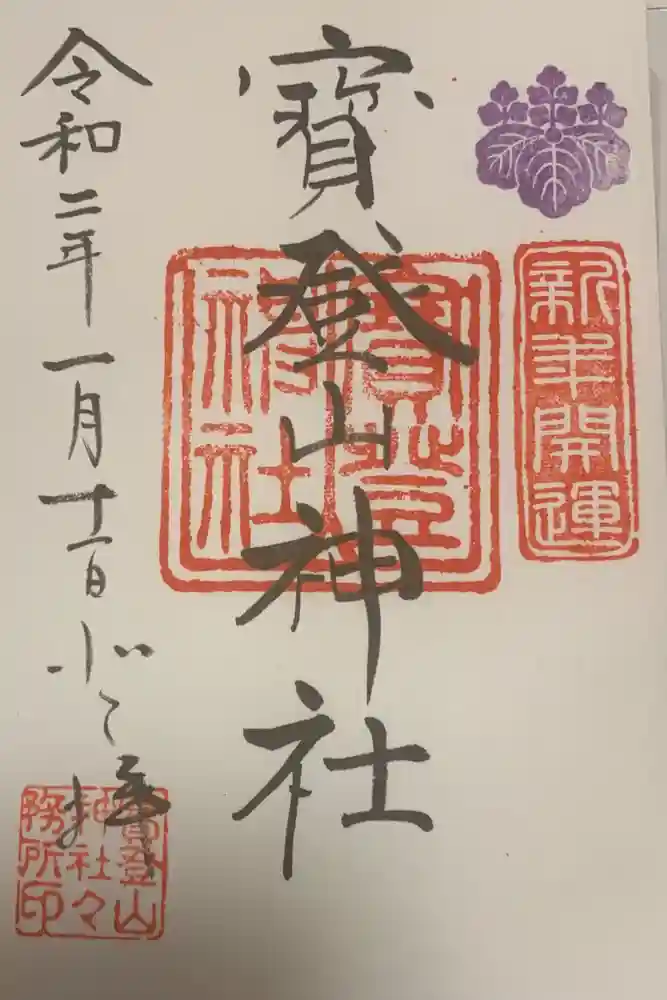 新年開運
寳登山神社
寶登山
神社
令和二年一月十一日
寶登山
神社々
務所印